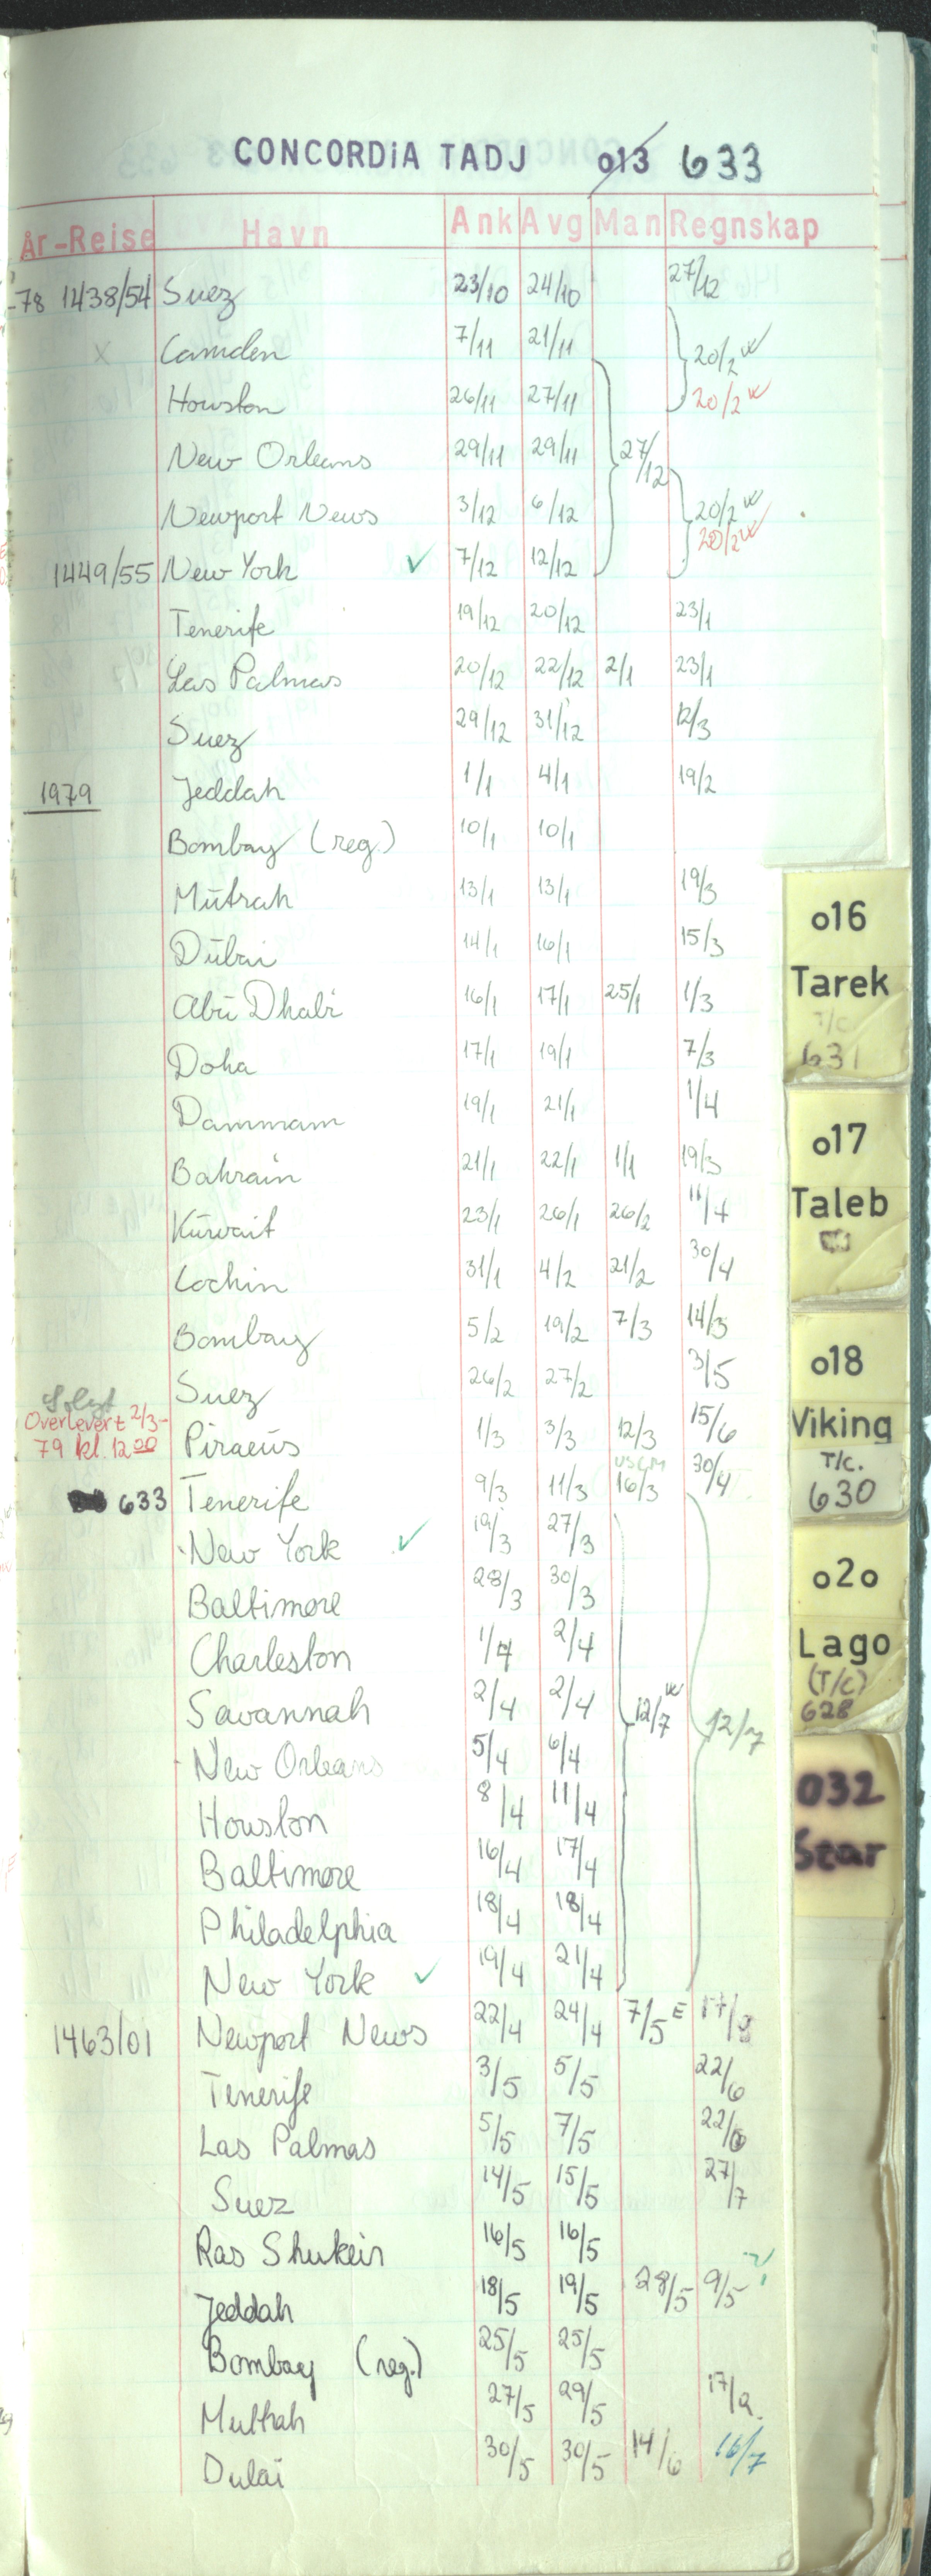 CONCORDIA TADJ o13 633
År-Reise Havn Ank Avg Man Regnskap
-78 1438/54 Suez 23/10 24/10 27/12
x Camden 7/11 21/11 20/2
Houston 26/11 27/11 20/2
New Orleans 29/11 29/11 27/12
Newport News 3/12 6/12 20/2
20/2
1449/55 New York ✓ 7/12 12/12
Tenerife 19/12 20/12 23/1
Las Palmas 20/12 22/12 2/1 23/1
Suez 29/12 31/12 12/3
1979 Jeddah 1/1 4/1 19/2
Bombay (reg.) 10/1 10/1
Mutrah 13/1 13/1 19/3
Dubai 14/1 16/1 15/3
Abu Dhabi 16/1 17/1 25/1 1/3
Doha 17/1 19/1 7/3
Dammam 19/1 21/1 1/4
Bahrain 21/1 22/1 1/1 19/3
Kuwait 23/1 26/1 26/2 11/4
Cochin 31/1 4/2 21/2 30/4
Bombay 5/2 19/2 7/3 14/3
Suez 26/2 27/2 3/5
Solgt
Overlevert 2/3-
79 kl. 12 00 Piraeus 1/3 3/3 12/3 15/6
633 Tenerife 9/3 11/3 USCM 16/3 30/4
New York ✓ 19/3 27/3
Baltimore 28/3 30/3
Charleston 1/4 2/4
Savannah 2/4 2/4 12/7 12/7
New Orleans 5/4 6/4
Houston 8/4 11/4
Baltimore 16/4 17/4
Philadelphia 18/4 18/4
New York ✓ 19/4 21/4
1463/01 Newport News 22/4 24/4 7/5 E
Tenerife 3/5 5/5 22/6
Las Palmas 5/5 7/5
Suez 14/5 15/5 27/7
Ras Shukeir 16/5 16/5
Jeddah 18/5 19/5 28/5 9/5
Bombay (reg.) 25/5 25/5
Muttah 27/5 29/5
Dubai 30/5 30/5 14/6 16/7
o16
Tarek
T/C
631
o17
Taleb
o18
Viking
T/C.
630
o2o
Lago
(T/C)
628
032
Star